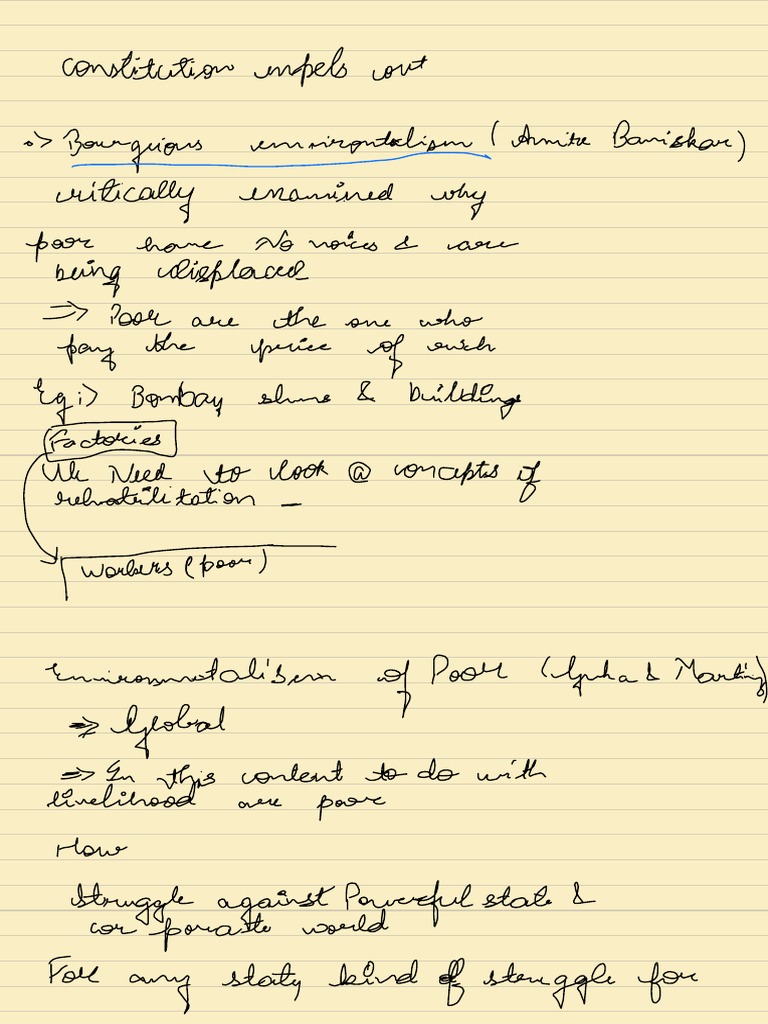 constitution impels out
:> Bourgious environtalism (Amita Baviskar)
critically examined why
poor have No voices & are
being displaced
=> Poor are the one who
pay the price of such
Eg:> Bombay slums & buildings
Factories
We Need to look @ concepts of
rehabilitation _
Workers (poor)
Environmentalism of Poor (Guha & Martin
=> Global
=> In this context to do with
livelihood are poor
How
Struggle against Powerful state &
corporate world
For any kind of struggle for